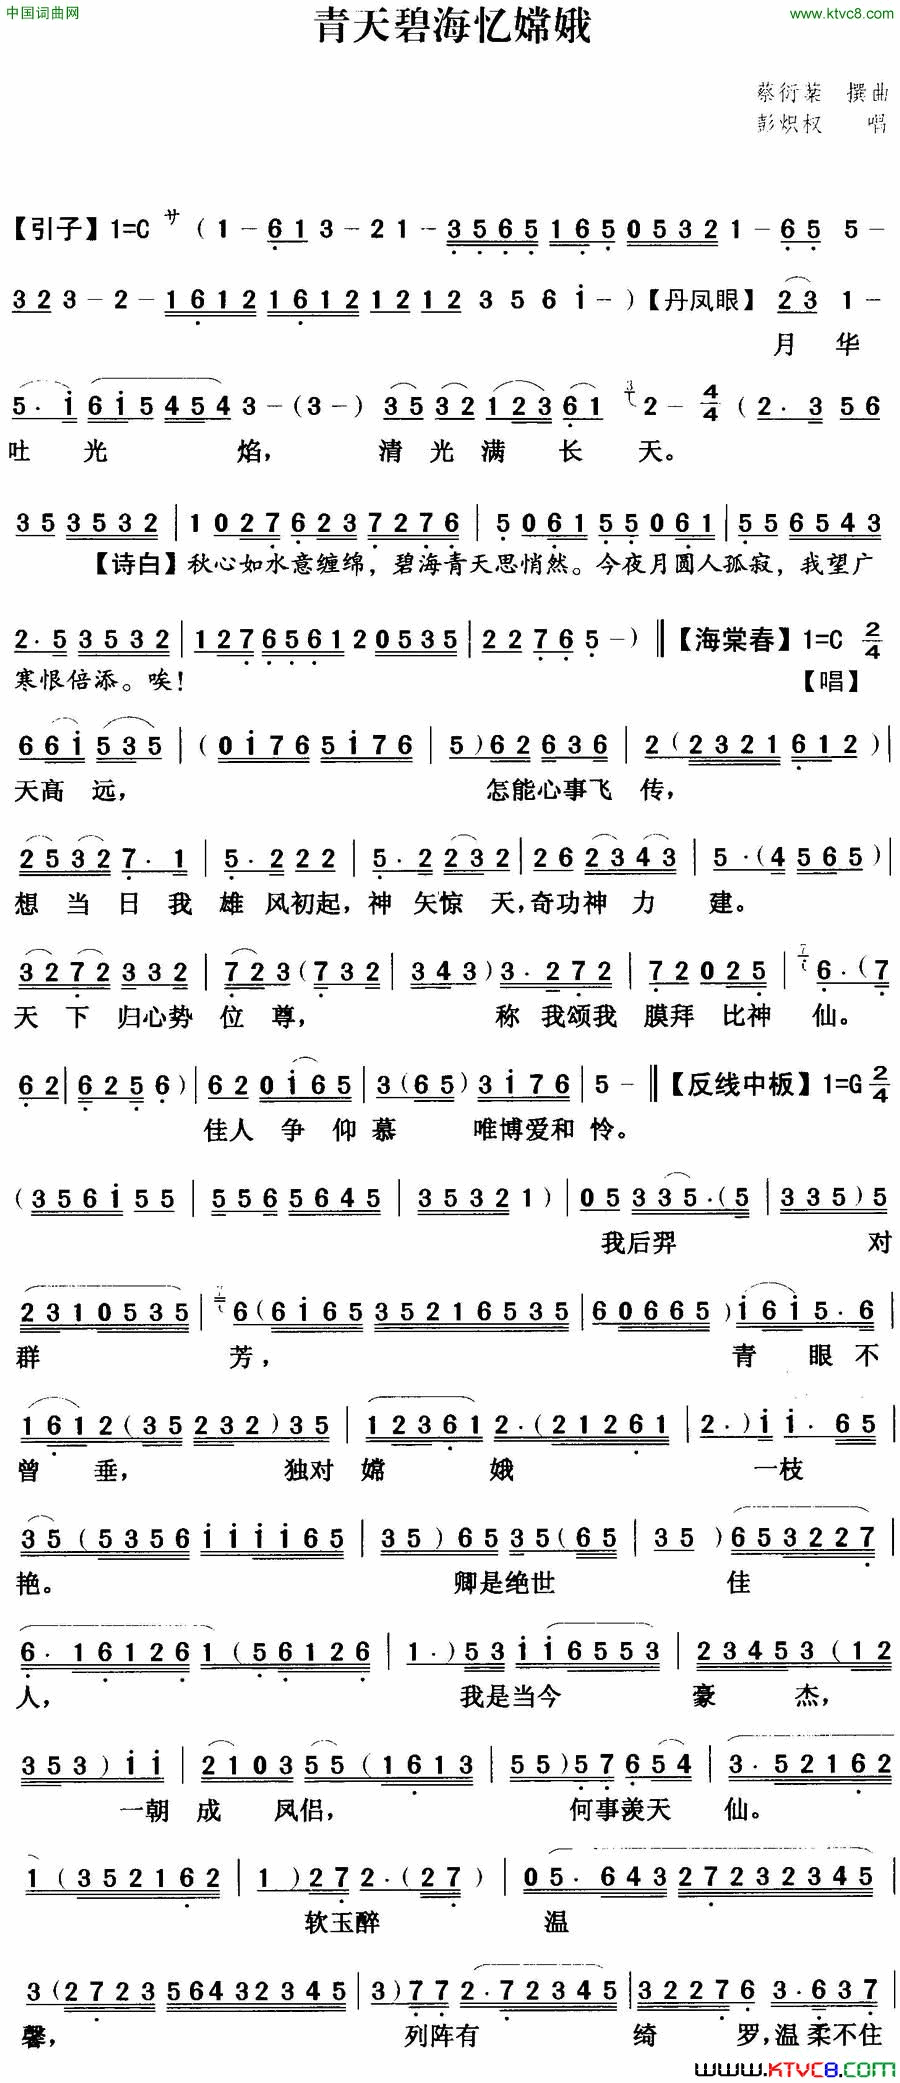 中国词曲网
www.ktvc8.com
青天碧海忆嫦娥
蔡衍棻 撰曲
彭炽权 唱
【引子】1=C サ (1 - 6 1 3 - 2 1 - 3 5 6 5 1 6 5 0 5 3 2 1 - 6 5 5 -
3 2 3 - 2 - 1 6 1 2 1 6 1 2 1 2 1 2 3 5 6 i - )【丹凤眼】2 3 1 -
月 华
5 . i 6 i 5 4 5 4 3 - ( 3 - ) 3 5 3 2 1 2 3 6 1 2 - 4/4 ( 2 . 3 5 6
吐 光 焰, 清 光 满 长 天。
3 5 3 5 3 2 | 1 0 2 7 6 2 3 7 2 7 6 | 5 0 6 1 5 5 0 6 1 | 5 5 6 5 4 3
【诗白】秋心如水意缠绵，碧海青天思悄然。今夜月圆人孤寂，我望广
2 . 5 3 5 3 2 | 1 2 7 6 5 6 1 2 0 5 3 5 | 2 2 7 6 5 - ) ‖【海棠春】1=C 2/4
寒恨倍添。唉! 【唱】
6 6 i 5 3 5 | ( 0 i 7 6 5 i 7 6 | 5 ) 6 2 6 3 6 | 2 ( 2 3 2 1 6 1 2 ) |
天高 远, 怎能心事飞 传,
2 5 3 2 7 . 1 | 5 . 2 2 2 | 5 . 2 2 3 2 | 2 6 2 3 4 3 | 5 . ( 4 5 6 5 ) |
想 当 日 我 雄 风初起, 神 矢惊 天,奇功神 力 建。
3 2 7 2 3 3 2 | 7 2 3 ( 7 3 2 | 3 4 3 ) 3 . 2 7 2 | 7 2 0 2 5 | 6 . ( 7
天 下 归心势 位 尊, 称 我颂我 膜拜 比神 仙。
6 2 | 6 2 5 6 ) | 6 2 0 i 6 5 | 3 ( 6 5 ) 3 i 7 6 | 5 - ‖【反线中板】1=G 2/4
佳人 争 仰 慕 唯博爱和 怜。
( 3 5 6 i 5 5 | 5 5 6 5 6 4 5 | 3 5 3 2 1 ) | 0 5 3 3 5 . ( 5 | 3 3 5 ) 5
我后羿 对
2 3 1 0 5 3 5 | 6 ( 6 i 6 5 3 5 2 1 6 5 3 5 | 6 0 6 6 5 ) i 6 i 5 . 6 |
群 芳, 青 眼 不
1 6 1 2 ( 3 5 2 3 2 ) 3 5 | 1 2 3 6 1 2 . ( 2 1 2 6 1 | 2 . ) i i . 6 5 |
曾 垂, 独对 嫦 娥 一枝
3 5 ( 5 3 5 6 i i i i 6 5 | 3 5 ) 6 5 3 5 ( 6 5 | 3 5 ) 6 5 3 2 2 7 |
艳。 卿是绝世 佳
6 . 1 6 1 2 6 1 ( 5 6 1 2 6 | 1 . ) 5 3 i i 6 5 5 3 | 2 3 4 5 3 ( 1 2
人, 我是当今 豪 杰,
3 5 3 ) i i | 2 1 0 3 5 5 ( 1 6 1 3 | 5 5 ) 5 7 6 5 4 | 3 . 5 2 1 6 2
一朝 成 凤侣, 何事羡天 仙。
1 ( 3 5 2 1 6 2 | 1 ) 2 7 2 . ( 2 7 | 0 5 . 6 4 3 2 7 2 3 2 3 4 5 |
软玉醉 温
3 ( 2 7 2 3 5 6 4 3 2 3 4 5 | 3 ) 7 7 2 . 7 2 3 4 5 | 3 2 2 7 6 3 . 6 3 7 |
馨, 列阵有 绮 罗,温 柔不住
www.KTVC8.com